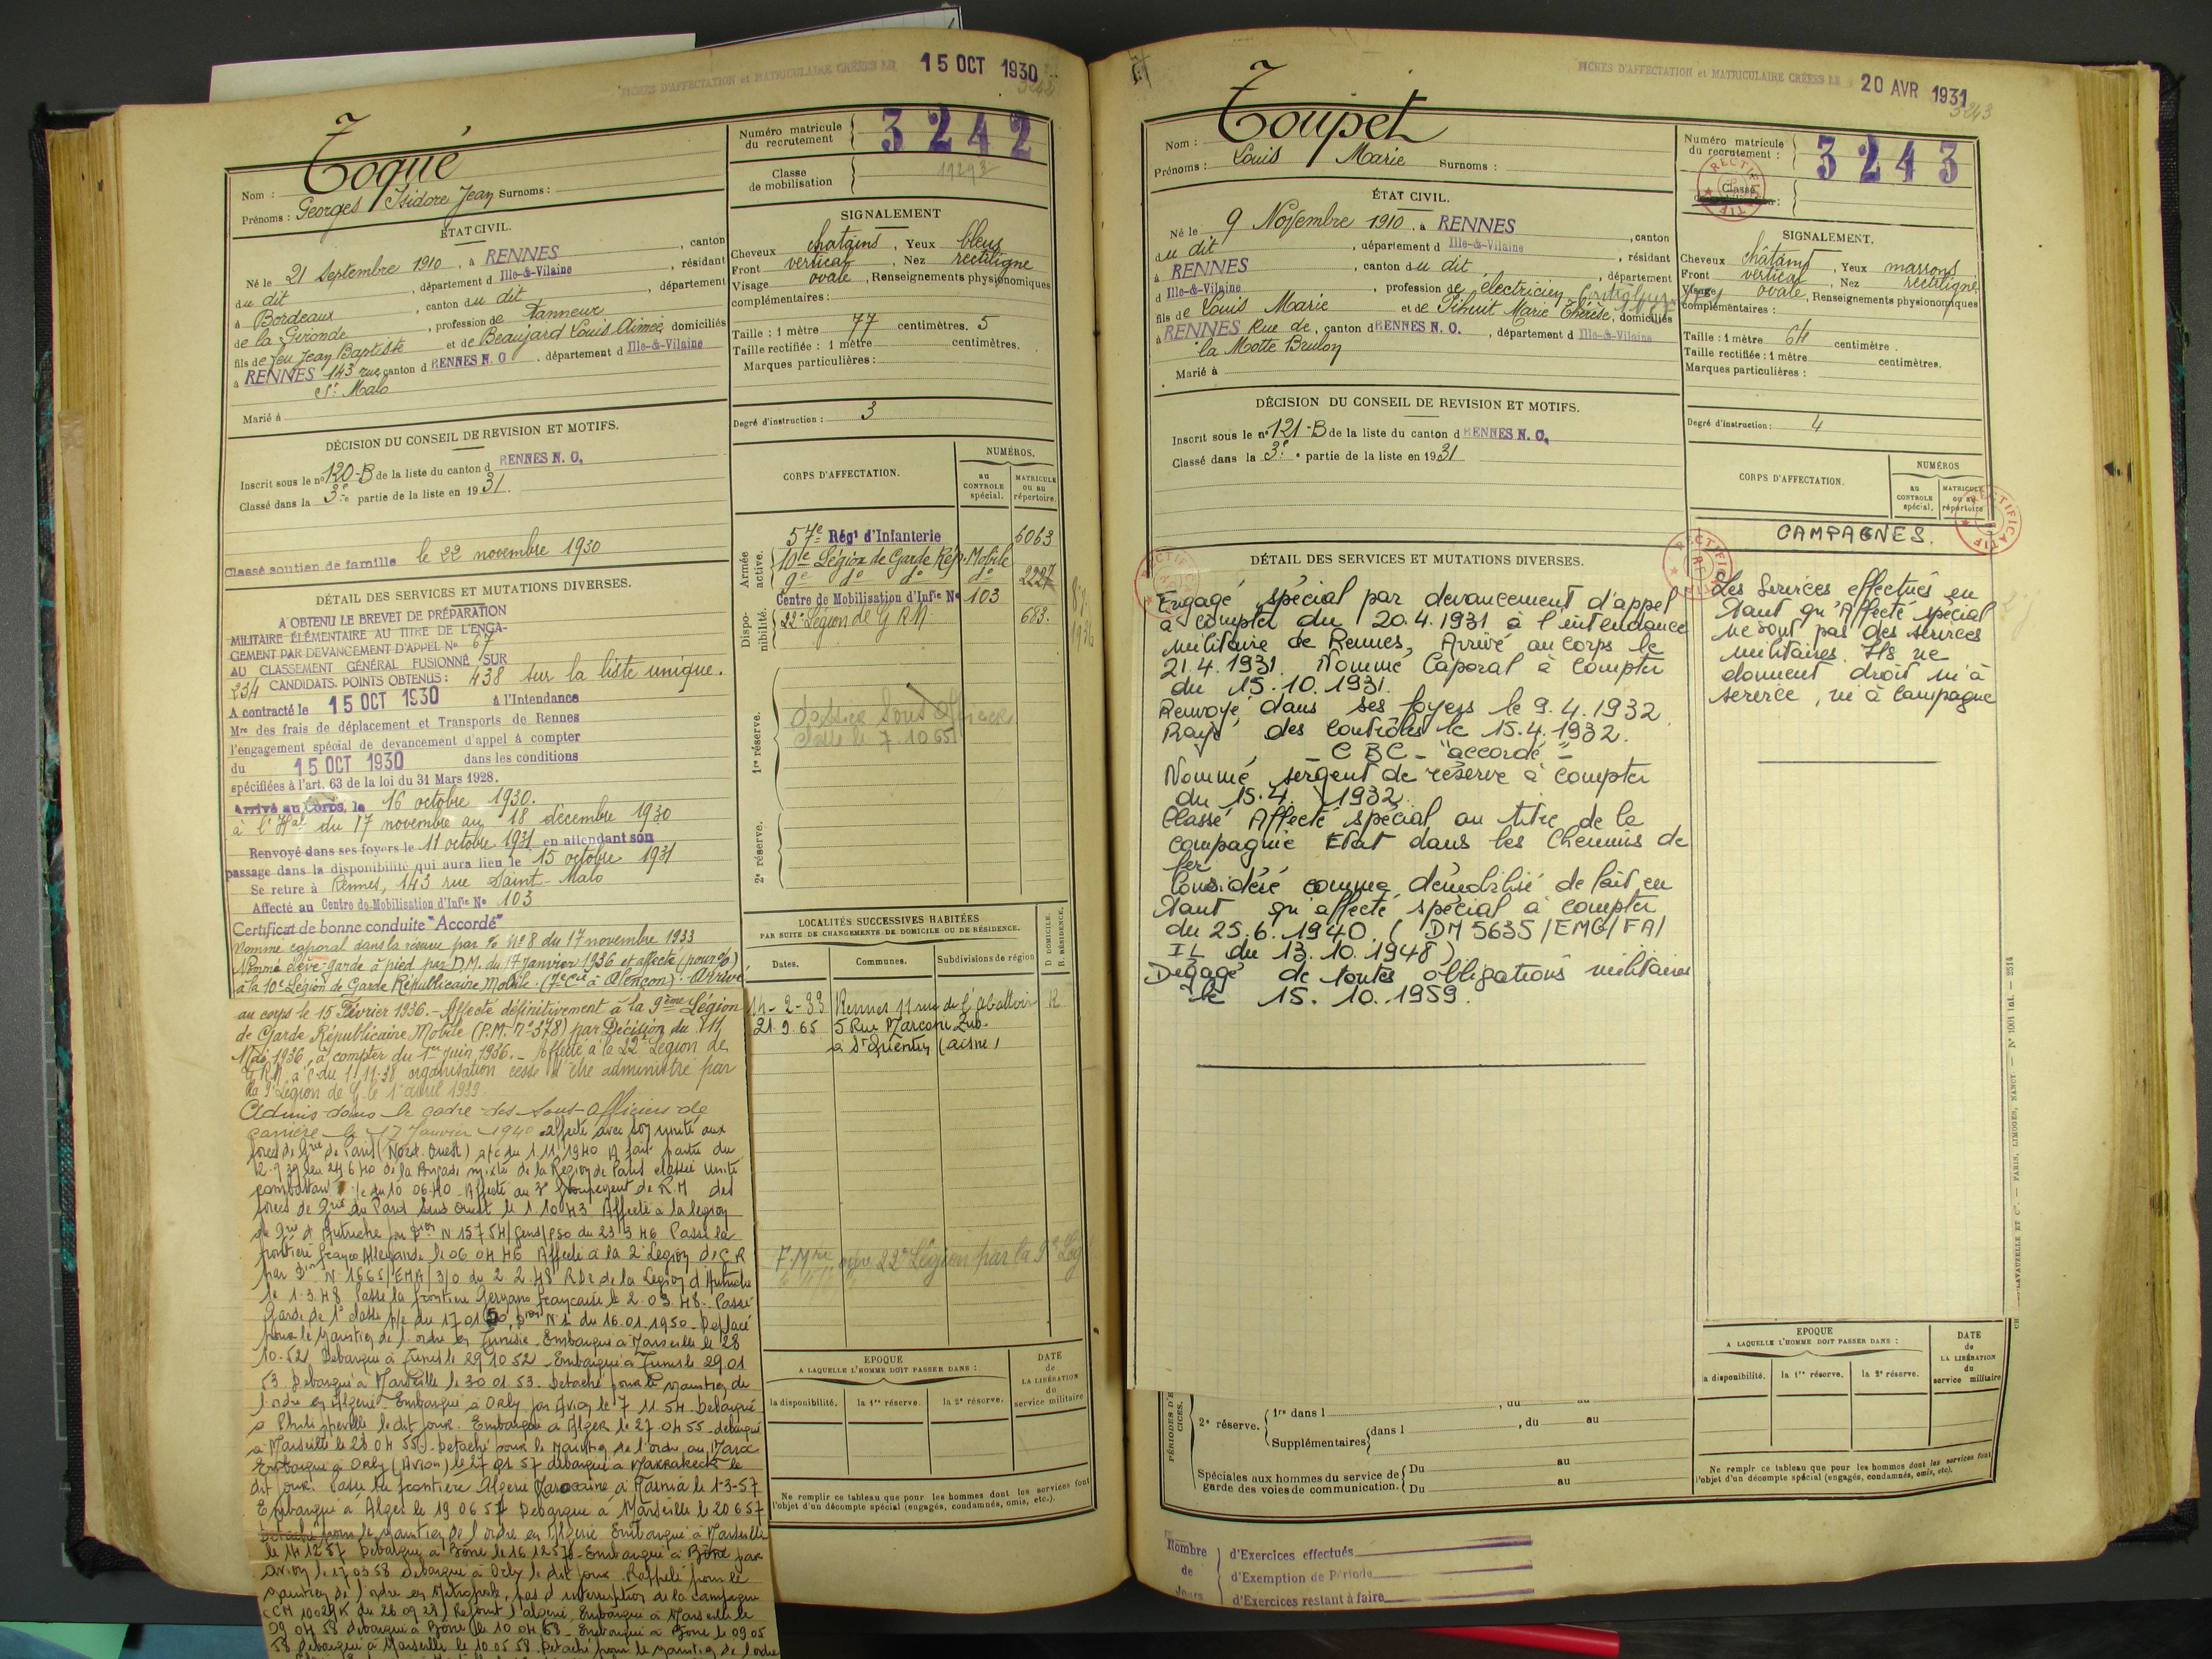 FICHES D'AFFECTATION et MATRICULAIRE CRÉÉES LE 15 OCT 1930
3242
Nom : Toqué
Prénoms : Georges Isidore Jean Surnoms :
Numéro matricule du recrutement 3242
Classe de mobilisation
ÉTAT CIVIL.
Né le 21 Septembre 1910, à RENNES, canton
du dit, département d Ille-&-Vilaine, résidant
à Bordeaux, canton du dit, département
de la Gironde, profession de tanneur
fils de feu Jean Baptiste et de Beaujard Louis Aimée, domiciliés
à RENNES 143 rue canton d RENNES N. O., département d Ille-&-Vilaine
St Malo
Marié à
SIGNALEMENT
Cheveux chatains, Yeux bleus
Front vertical, Nez rectiligne
Visage ovale, Renseignements physionomiques
complémentaires :
Taille : 1 mètre 77 centimètres. 5
Taille rectifiée : 1 mètre centimètres.
Marques particulières :
Degré d'instruction : 3
DÉCISION DU CONSEIL DE REVISION ET MOTIFS.
Inscrit sous le n° 120-B de la liste du canton d RENNES N. O.
Classé dans la 3e partie de la liste en 1931.
Classé soutien de famille le 22 novembre 1930
CORPS D'AFFECTATION.
NUMÉROS.
au CONTROLE spécial.
MATRICULE ou au répertoire.
Armée active.
57e Régt d'Infanterie 6063
10e Légion de Garde Rép. Mobile
9e do do do 2227
Dispo-nibilité.
Centre de Mobilisation d'Infie N° 103
22e Légion de G R M 683.
1re réserve.
Dossier Sous Officier
2e réserve.
DÉTAIL DES SERVICES ET MUTATIONS DIVERSES.
A OBTENU LE BREVET DE PRÉPARATION
MILITAIRE ÉLÉMENTAIRE AU TITRE DE L'ENGA-
GEMENT PAR DEVANCEMENT D'APPEL N° 67
AU CLASSEMENT GÉNÉRAL FUSIONNÉ SUR
234 CANDIDATS. POINTS OBTENUS : 438 sur la liste unique.
A contracté le 15 OCT 1930 à l'Intendance
Mre des frais de déplacement et Transports de Rennes
l'engagement spécial de devancement d'appel à compter
du 15 OCT 1930 dans les conditions
spécifiées à l'art. 63 de la loi du 31 Mars 1928.
Arrivé au Corps, le 16 octobre 1930.
à l'Hal du 17 novembre au 18 décembre 1930
Renvoyé dans ses foyers le 11 octobre 1931 en attendant son
passage dans la disponibilité qui aura lieu le 15 octobre 1931
Se retire à Rennes, 143 rue Saint-Malo
Affecté au Centre de Mobilisation d'Infie N° 103
Certificat de bonne conduite "Accordé"
Nommé caporal dans la réserve par N° 8 du 17 novembre 1933
Nommé élève-garde à pied par D.M. du 17 Janvier 1936 et affecté (pour %)
à la 10e Légion de Garde Républicaine Mobile (7e Cie à Alençon). Arrivé
au corps le 15 Février 1936. - Affecté définitivement à la 9ème Légion
de Garde Républicaine Mobile (P.M. n° 378) par Décision du 11
Mai 1936, à compter du 1er Juin 1936. - Affecté à la 22e Légion de
G R M à c. du 1.11.38 organisation cesse d'être administré par
la 9e Légion de G. le 1er avril 1939.
Admis dans le cadre des Sous-Officiers de
carrière le 17 Janvier 1940 affecté avec son unité aux
forces de Gie de Paris (Nord-Ouest) a/c du 1.11.1940 A fait partie du
2.9.39 au 24 6 40 de la Brigade mixte de la Région de Paris classée unité
combattante du 10 06.40 - Affecté au 3e Groupement de R.M des
forces de Gie du Paris Sud Ouest le 1.10 43 Affecté à la legion
de Gie d'Autriche par Don N 15754/Gend/PSO du 23 3 46 Passe la
frontière Franco Allemande le 06 04 46 Affecté à la 2e Legion de G R
par Don N 1665/EMA/3/0 du 2.2.48 RDC de la Legion d'Autriche
le 1.3.48 Passe la frontière Germano française le 2.03.48. Passé
Garde de 1e classe p/c du 17 01 50, Don N 2 du 16.01.1950 - Déplacé
pour le maintien de l'ordre en Tunisie - Embarqué à Marseille le 28
10.52 Debarqué à Tunis le 29 10 52 - Embarqué à Tunis le 29.01
53 Debarqué à Marseille le 30 01 53. Detaché pour le maintien de
l'ordre en Algerie - Embarqué à Orly par Avion le 7 11 54 Debarqué
à Philippeville le dit jour. Embarqué à Alger le 27 04 55 - debarqué
à Marseille le 28 04 55 - Detaché pour le maintien de l'ordre au Maroc
Embarqué à Orly (Avion) le 27 01 57 debarqué à Marrakeck le
dit jour. Passe la frontiere Algerie Marocaine à Marnia le 1-3-57
Embarqué à Alger le 19 06 57 Debarqué à Marseille le 20 6 57
Detaché pour le maintien de l'ordre en Algerie Embarqué à Marseille
le 14 12 57 Debarqué à Bône le 16 12 57 - Embarqué à Bône par
avion le 17 03 58 debarqué à Orly le dit jour. Rappelé pour le
maintien de l'ordre en Metropole, pas d'interruption de la campagne
Rejoint l'algerie, Embarqué à Marseille le
09 04 58 debarqué à Bône le 10 04 58 - Embarqué à Bone le 09 05
58 debarqué à Marseille le 10 05 58. Detaché pour le maintien de l'ordre
LOCALITÉS SUCCESSIVES HABITÉES
PAR SUITE DE CHANGEMENTS DE DOMICILE OU DE RÉSIDENCE.
Dates. Communes. Subdivisions de région
D DOMICILE. R. RÉSIDENCE.
14-2-33 Rennes 11 rue de l'abattoir R
21.9.65 5 Rue Marconi
à St Quentin (aisne)
22e Légion par la 9e Leg
EPOQUE
A LAQUELLE L'HOMME DOIT PASSER DANS :
la disponibilité. la 1re réserve. la 2e réserve.
DATE de LA LIBÉRATION du service militaire
Ne remplir ce tableau que pour les hommes dont les services font
l'objet d'un décompte spécial (engagés, condamnés, omis, etc.).
FICHES D'AFFECTATION et MATRICULAIRE CRÉÉES LE 20 AVR 1931
3243
Nom : Toupet
Prénoms : Louis Marie Surnoms :
Numéro matricule du recrutement : 3243
Classe
RECTIFICATIF
ÉTAT CIVIL.
Né le 9 Novembre 1910, à RENNES, canton
du dit, département d Ille-&-Vilaine, résidant
à RENNES, canton du dit, département
d Ille-&-Vilaine, profession de électricien
fils de Louis Marie et de Marie Thérèse, domiciliés
à RENNES Rue de, canton d RENNES N. O., département d Ille-&-Vilaine
la Motte Brulon
Marié à
SIGNALEMENT.
Cheveux châtains, Yeux marrons
Front vertical, Nez rectiligne
Visage ovale, Renseignements physionomiques
complémentaires :
Taille : 1 mètre 64 centimètre.
Taille rectifiée : 1 mètre centimètres.
Marques particulières :
Degré d'instruction : 4
DÉCISION DU CONSEIL DE REVISION ET MOTIFS.
Inscrit sous le n° 121-B de la liste du canton d RENNES N. O.
Classé dans la 3e partie de la liste en 1931
CORPS D'AFFECTATION.
NUMÉROS
au CONTROLE spécial.
MATRICULE ou au répertoire
DÉTAIL DES SERVICES ET MUTATIONS DIVERSES.
Engagé spécial par devancement d'appel
à compter du 20.4.1931 à l'intendance
militaire de Rennes, Arrivé au corps le
21.4.1931. Nommé Caporal à compter
du 15.10.1931.
Renvoyé dans ses foyers le 9.4.1932
Rayé des contrôles le 15.4.1932.
- C B C - "accordé" -
Nommé sergent de réserve à compter
du 15.4.1932.
Classé Affecté spécial au titre de la
compagnie Etat dans les Chemins de
fer
Considéré comme démobilisé de fait en
tant qu'affecté spécial à compter
du 25.6.1940. (DM 5635/EMG/FA/
IL du 13.10.1948)
Dégagé de toutes obligations militaires
le 15.10.1959.
CAMPAGNES.
Les Services effectués en
tant qu'Affecté spécial
ne sont pas des services
militaires. Ils ne
donnent droit ni à
service, ni à campagne
PÉRIODES D'EXERCICES.
2e réserve. 1re dans l , du au
Supplémentaires dans l , du au
Spéciales aux hommes du service de garde des voies de communication. Du au
Du au
EPOQUE
A LAQUELLE L'HOMME DOIT PASSER DANS :
la disponibilité. la 1re réserve. la 2e réserve.
DATE de LA LIBÉRATION du service militaire
Ne remplir ce tableau que pour les hommes dont les services font
l'objet d'un décompte spécial (engagés, condamnés, omis, etc).
Nombre de Jours
d'Exercices effectués
d'Exemption de Période
d'Exercices restant à faire
CH. LAVAUZELLE ET Cie. — PARIS, LIMOGES, NANCY. — N° 1001 int. — 2514